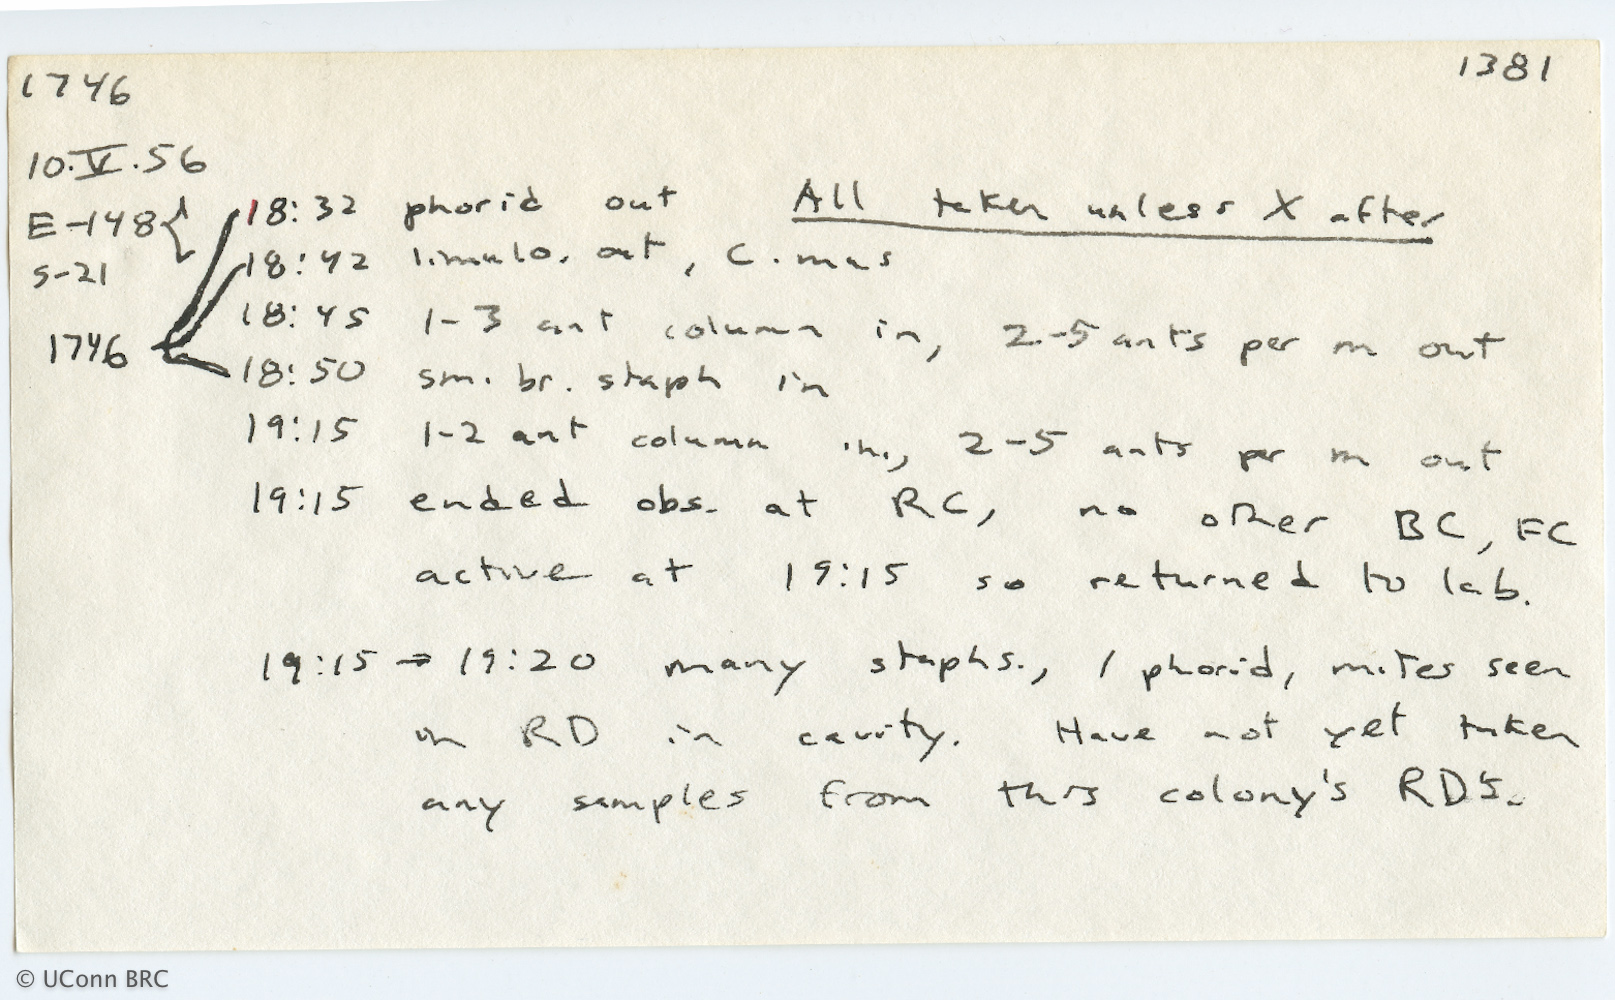 1746
1381
10.V.56
E-148
S-21
1746
18:32 phorid out All taken unless X after
18:42 limulo. out, C. mus
18:45 1-3 ant column in, 2-5 ants per m out
18:50 sm. br. staph in
19:15 1-2 ant column in, 2-5 ants per m out
19:15 ended obs. at RC, no other BC, FC
active at 19:15 so returned to lab.
19:15 → 19:20 many staphs., 1 phorid, mites seen
in RD in cavity. Have not yet taken
any samples from this colony's RD's.
© UConn BRC